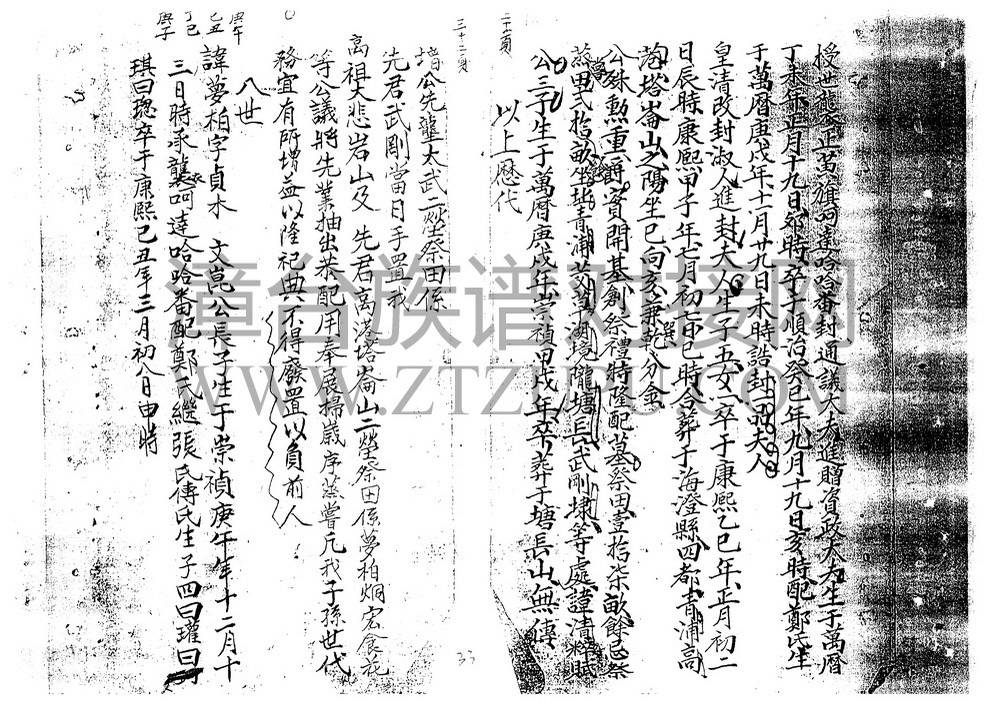 授世襲正黃旗呵達哈哈番封通議大夫進贈資政大夫生于萬曆
丁未年正月十九日卯時卒于順治癸巳年九月十九日亥時配鄭氏生
于萬曆庚戌年十一月廿九日未時誥封夫人
皇清改封淑人進封夫人生子五女一卒于康熙乙巳年正月初二
日辰時康熙甲子年七月初七申巳時合葬于海澄縣四都青浦高
菭塔崙山之陽坐巳向亥兼乾分金
公殊勳重爵資開基創祭禮特隆配墓祭田壹拾柒畝餘忌祭
蒸田弍拾畝坐址青浦草湖境隴塘長武剛埭等處諱清粹賦
公三子生于萬曆庚戌年崇禎甲戌年卒葬于塘長山無傳
以上歷代
二十頁
三十二頁
公先壟太武二塋祭田係
先君武剛當日手置我
高祖大悲岩山及 先君高菭塔崙山二塋祭田係夢柏炯宏食花
等公議將先業抽出恭配用奉展掃歲序蒸嘗凡我子孫世代
務宜有所增益以隆祀典不得廢置以負前人
八世
諱夢柏字貞木 文崑公長子生于崇禎庚午年十二月十
三日時承襲呵達哈哈番配鄭氏繼張氏傅氏生子四曰瓘曰
琪曰璁卒于康熙己丑年三月初八日申時
庚午
己丑
丁巳
庚子
33
漳台族谱对接网
WWW.ZTZUPU.COM